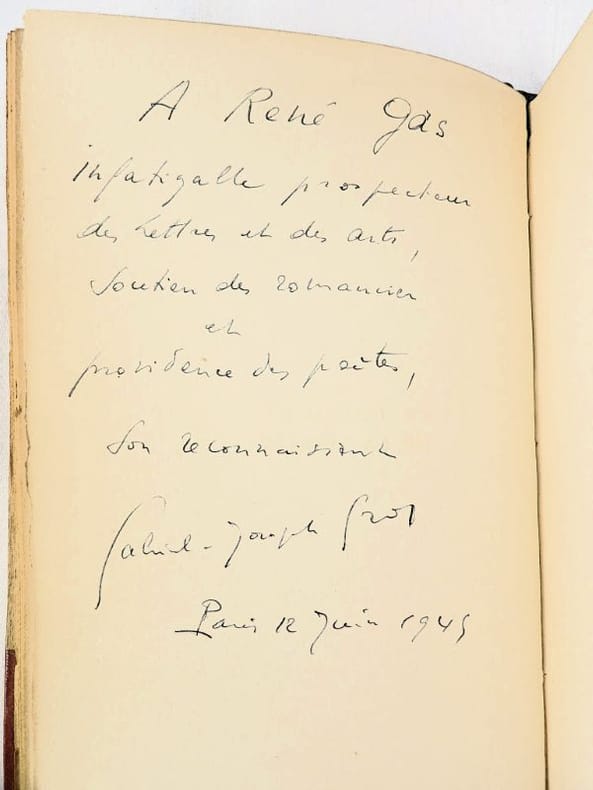 A René Gas
infatigable prospecteur
des Lettres et des arts,
Soutien des romancier
et
providence des poètes,
Son reconnaissant
Gabriel-Joseph Gros
Paris 12 Juin 1945